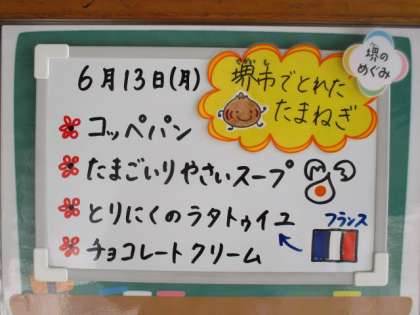 6月13日(月)
堺市でとれた
たまねぎ
堺の
めぐみ
コッペパン
たまごいりやさいスープ
とりにくのラタトゥイユ
フランス
チョコレートクリーム